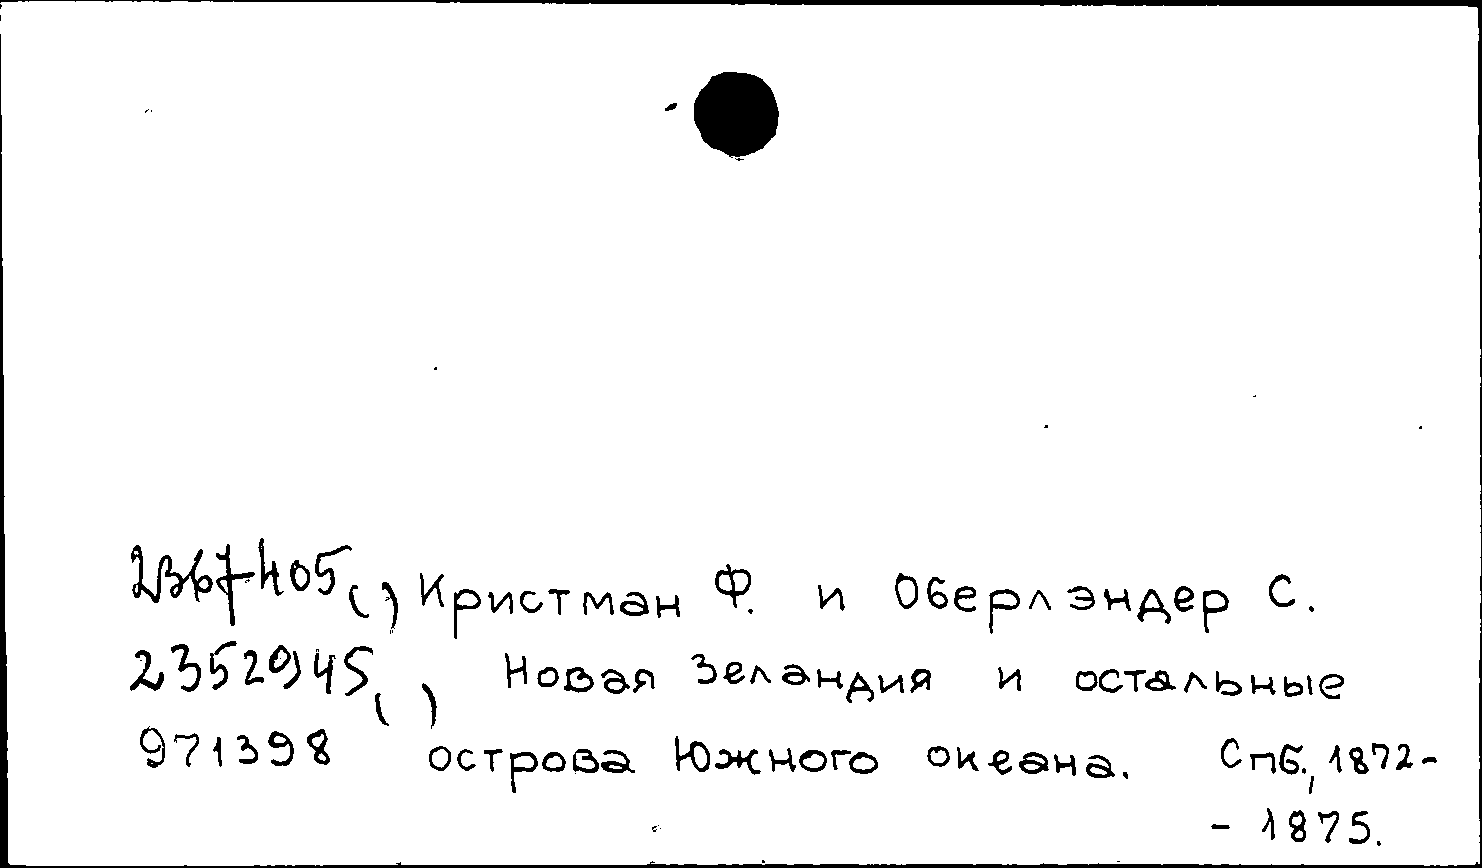 2367405( ) Кристман Ф. и Оберлэндер С.
2352945( ) Новая Зеландия и остальные
971398 острова Южного океана. Спб., 1872-
- 1875.